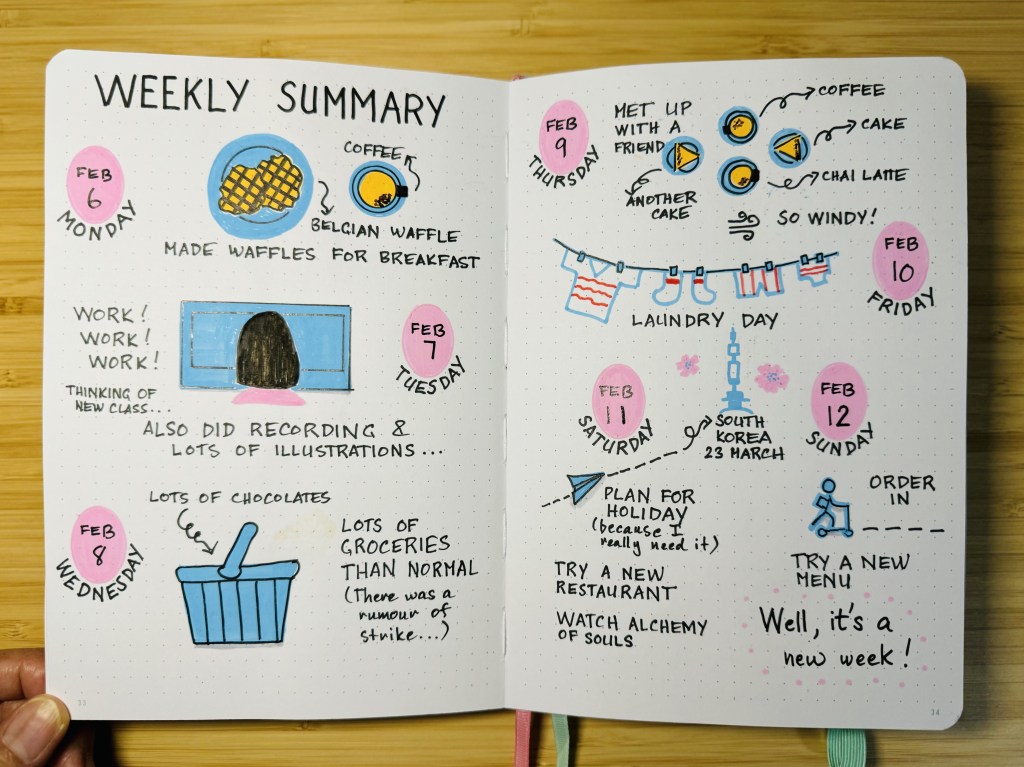 WEEKLY SUMMARY
FEB
6
MONDAY
COFFEE
BELGIAN WAFFLE
MADE WAFFLES FOR BREAKFAST
WORK!
WORK!
WORK!
THINKING OF
NEW CLASS...
FEB
7
TUESDAY
ALSO DID RECORDING &
LOTS OF ILLUSTRATIONS...
FEB
8
WEDNESDAY
LOTS OF CHOCOLATES
LOTS OF
GROCERIES
THAN NORMAL
(There was a
rumour of
strike...)
33
FEB
9
THURSDAY
MET UP
WITH A
FRIEND
COFFEE
CAKE
CHAI LATTE
ANOTHER
CAKE
SO WINDY!
FEB
10
FRIDAY
LAUNDRY DAY
FEB
11
SATURDAY
SOUTH
KOREA
23 MARCH
PLAN FOR
HOLIDAY
(because I
really need it)
TRY A NEW
RESTAURANT
WATCH ALCHEMY
OF SOULS
FEB
12
SUNDAY
ORDER
IN
TRY A NEW
MENU
Well, it's a
new week!
34